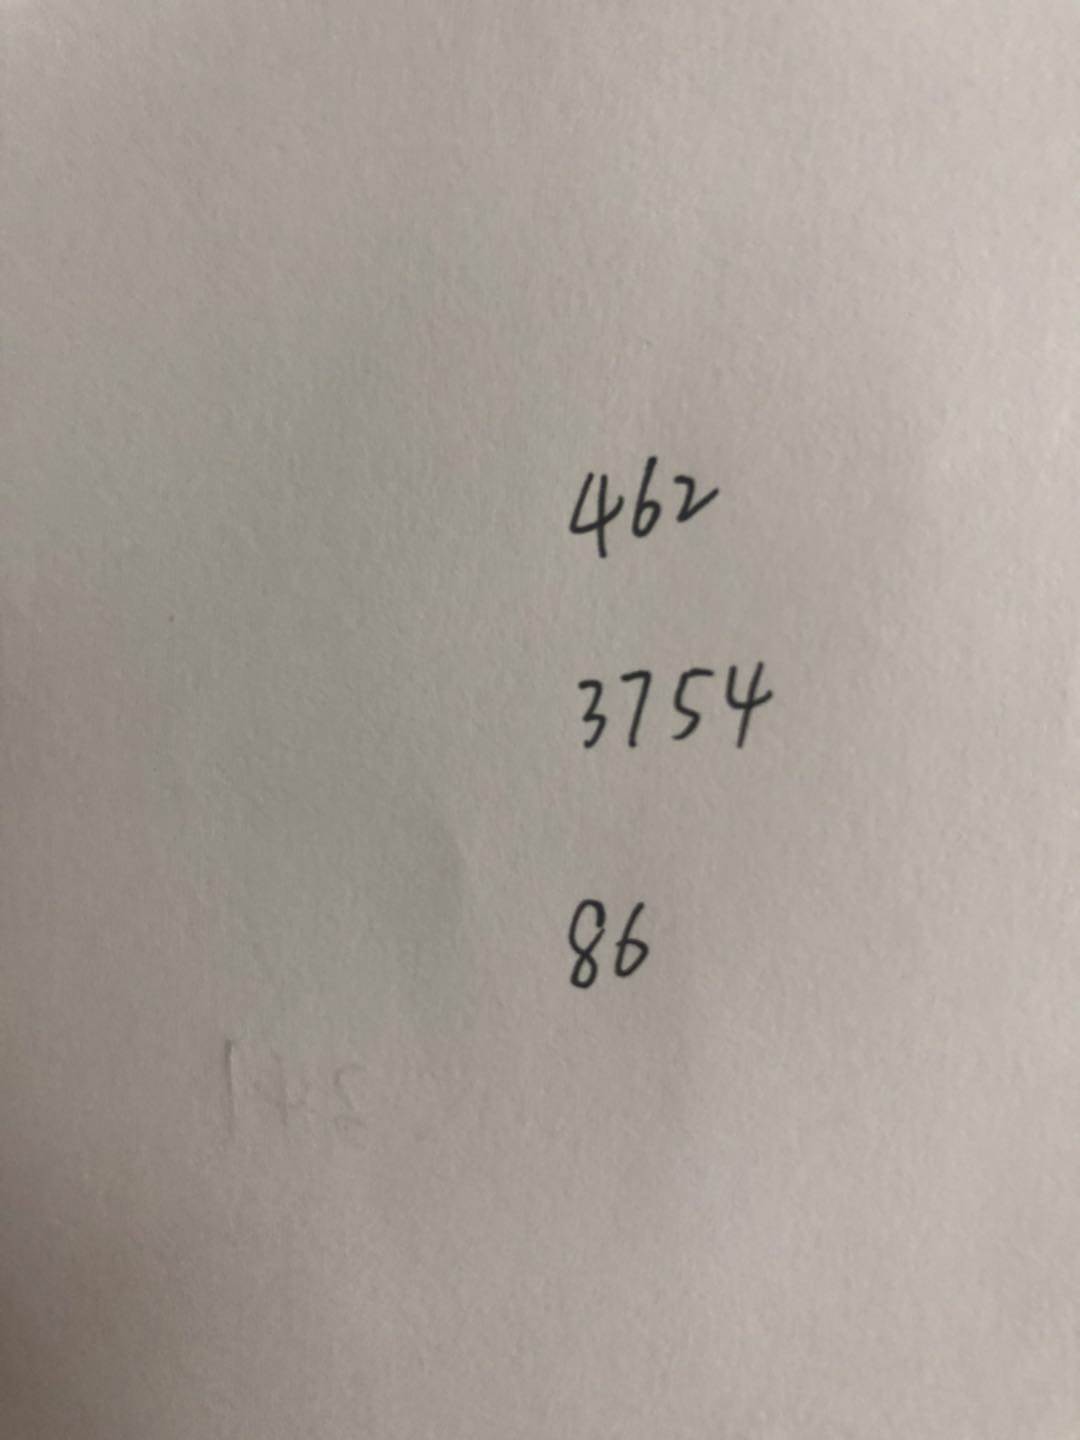 462
3754
86